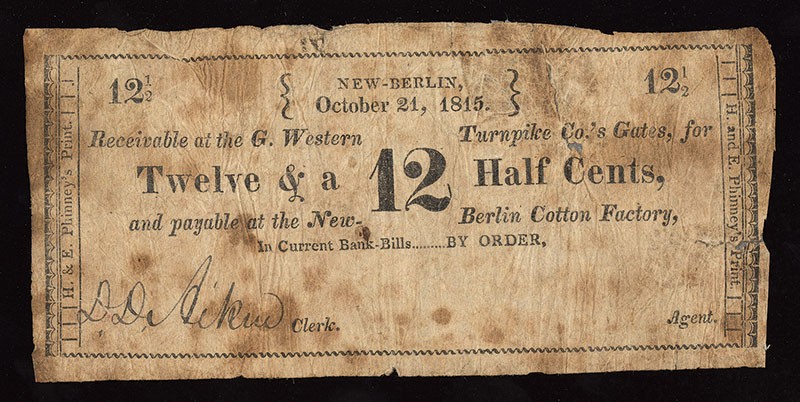 12½ NEW-BERLIN, 12½
October 21, 1815.
Receivable at the G. Western Turnpike Co.'s Gates, for
Twelve & a 12 Half Cents,
and payable at the New-Berlin Cotton Factory,
In Current Bank-Bills.........BY ORDER,
D.D. Aikin Clerk. Agent.
H. & E. Phinney's Print.
H. and E. Phinney's Print